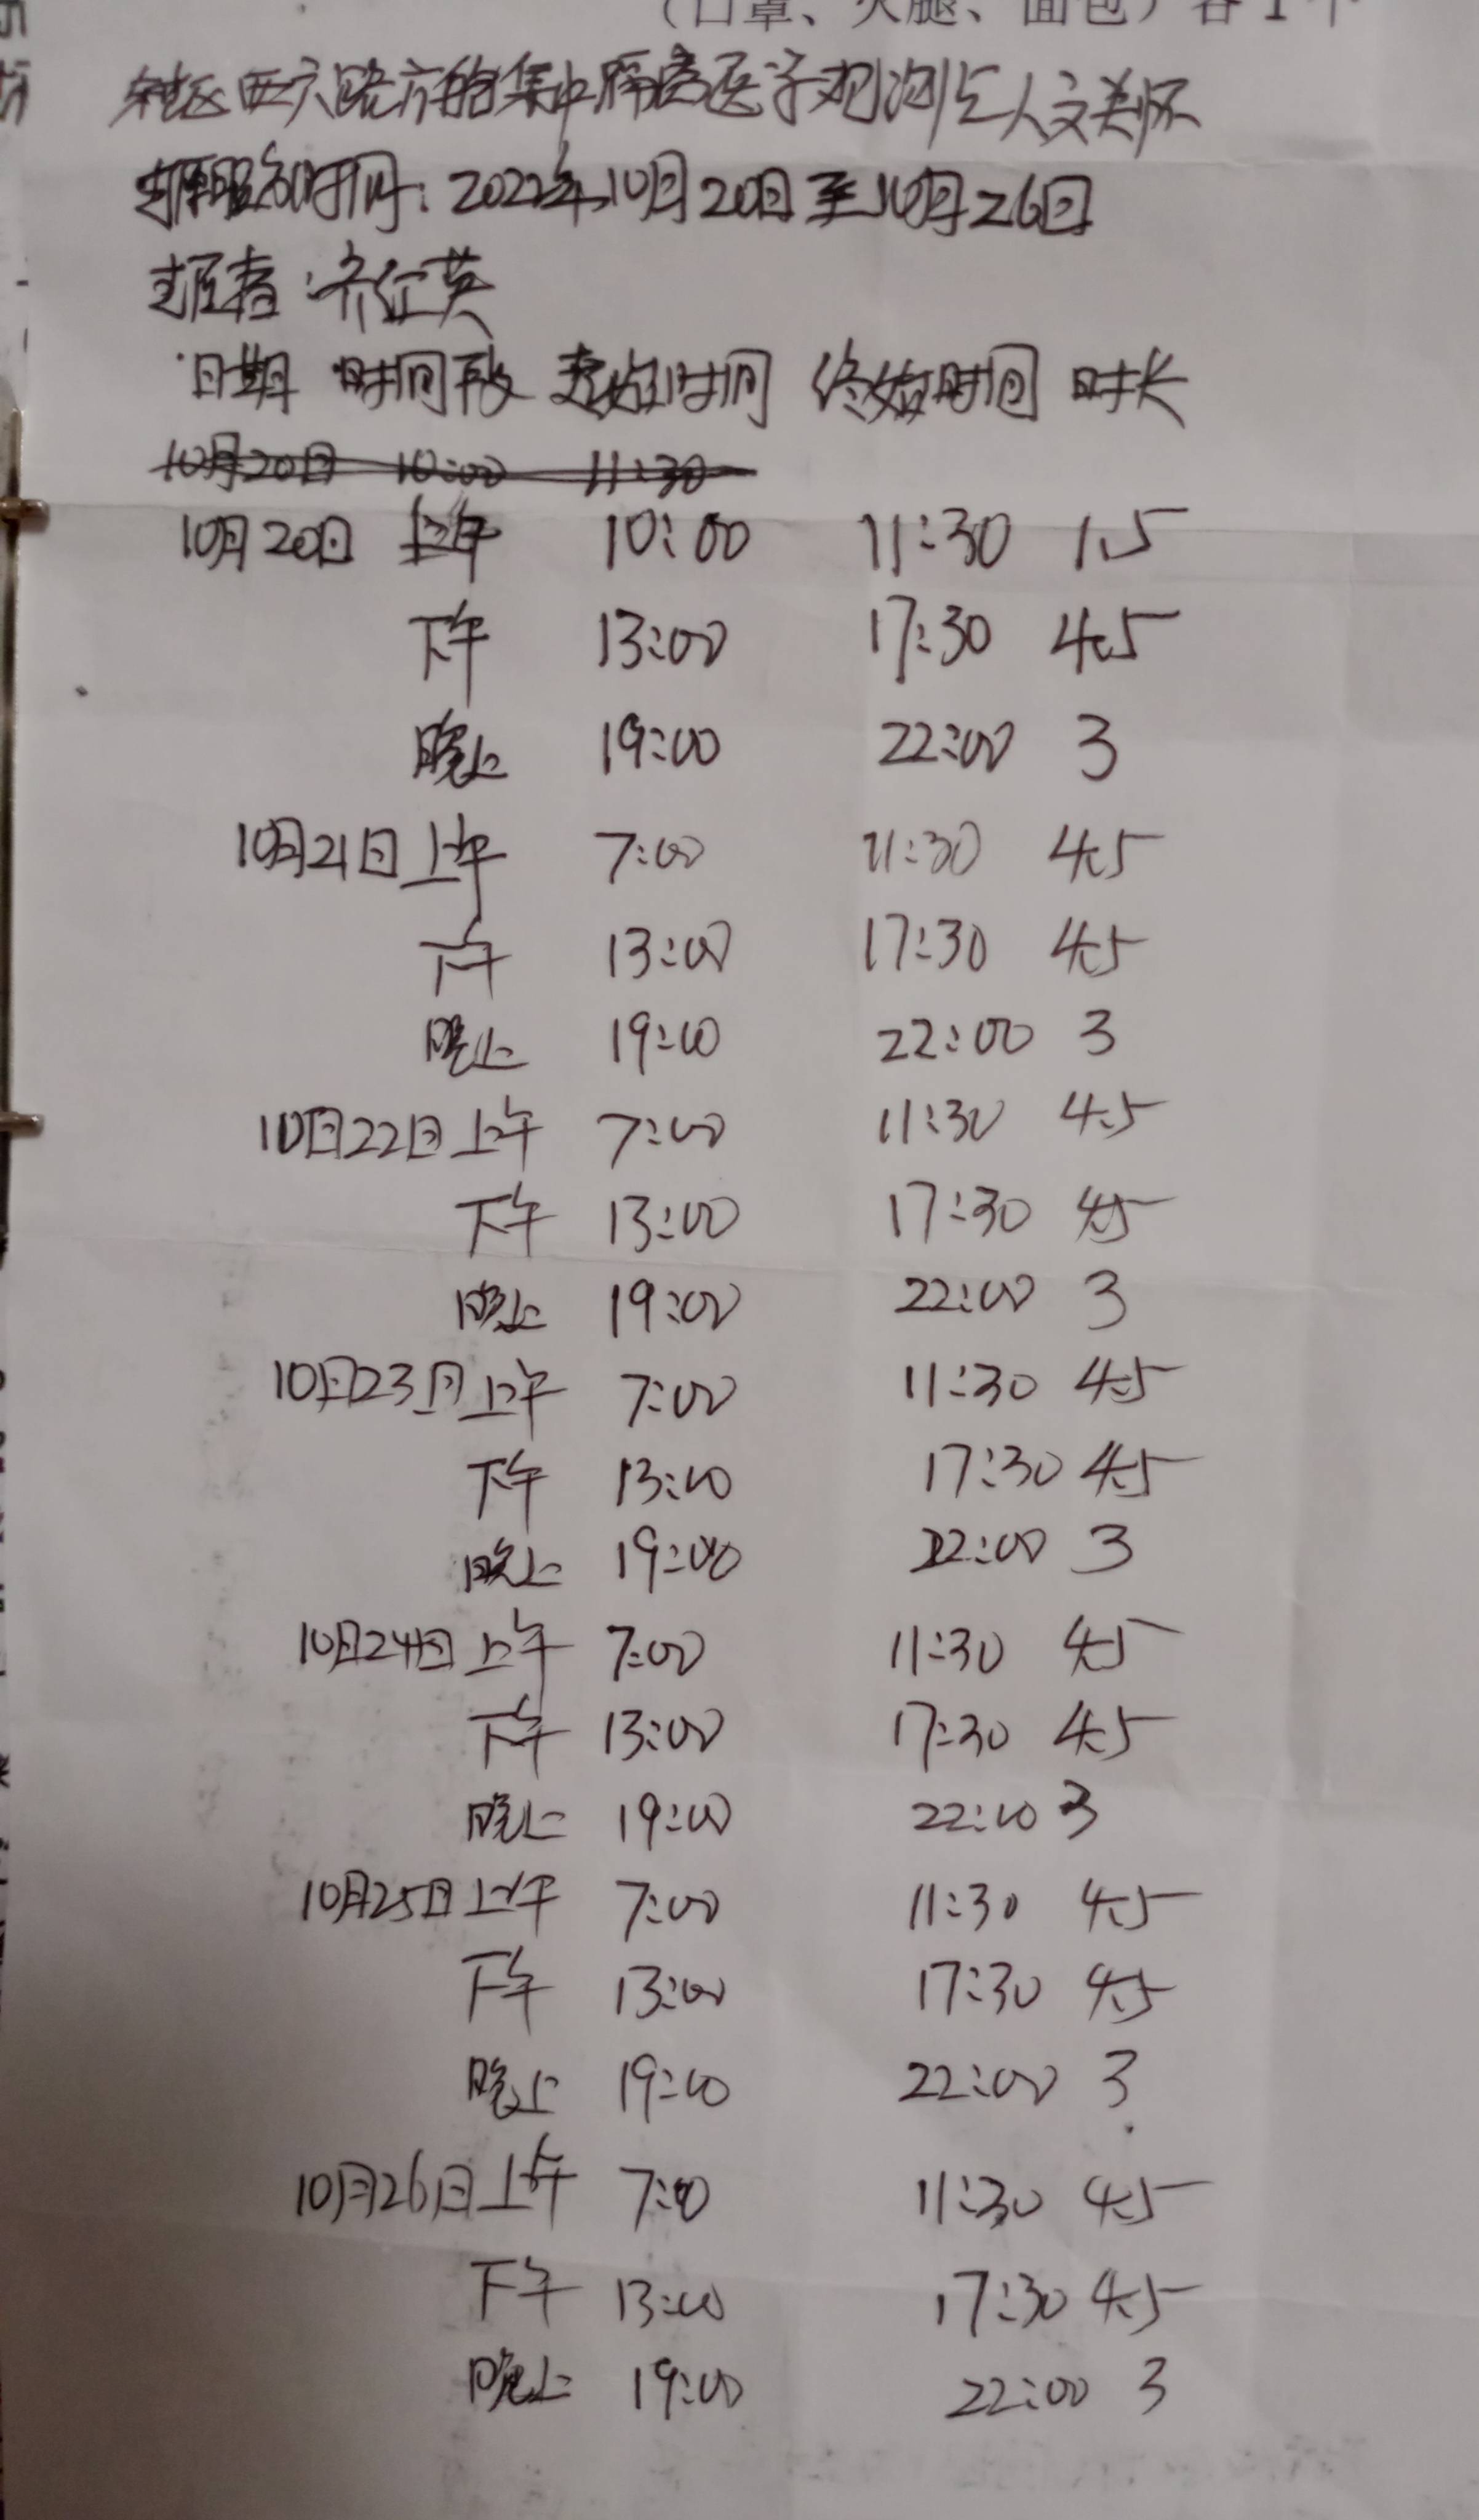 （口罩、火腿、面包）各1个
社区西六路方舱集中隔离医学观测点人文关怀
服务时间：2022年10月20日至10月26日
者：齐红英
日期 时间段 起始时间 终始时间 时长
10月20日 10:00 11:30
10月20日 上午 10:00 11:30 1.5
下午 13:00 17:30 4.5
晚上 19:00 22:00 3
10月21日 上午 7:00 11:30 4.5
下午 13:00 17:30 4.5
晚上 19:00 22:00 3
10月22日 上午 7:00 11:30 4.5
下午 13:00 17:30 4.5
晚上 19:00 22:00 3
10月23日 上午 7:00 11:30 4.5
下午 13:00 17:30 4.5
晚上 19:00 22:00 3
10月24日 上午 7:00 11:30 4.5
下午 13:00 17:30 4.5
晚上 19:00 22:00 3
10月25日 上午 7:00 11:30 4.5
下午 13:00 17:30 4.5
晚上 19:00 22:00 3
10月26日 上午 7:00 11:30 4.5
下午 13:00 17:30 4.5
晚上 19:00 22:00 3